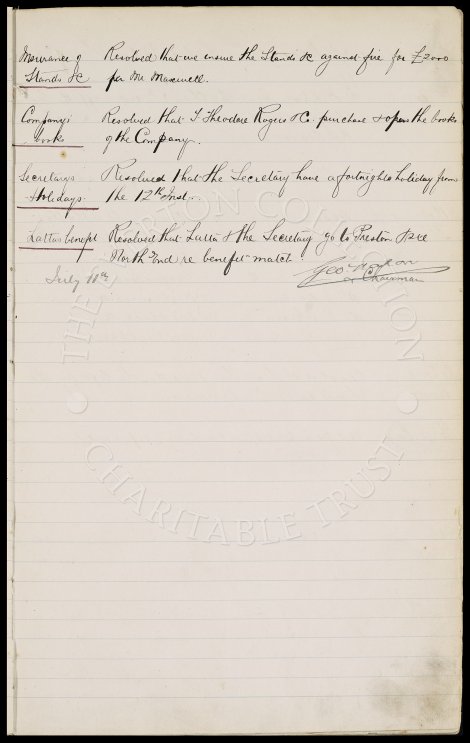 Insurance of Resolved that we insure the Stands &c against fire for £2000
Stands &c per Mr Maxwell.
Company's Resolved that T. Theodore Rogers & C. purchase & open the books
books of the Company.
Secretarys Resolved that the Secretary have a fortnights holiday from
Holidays the 12th Inst.
Lattas benefit Resolved that Latta & the Secretary go to Preston & see
North End re benefit match
July 10th Geo Mahon
Chairman
THE EVERTON COLLECTION
CHARITABLE TRUST